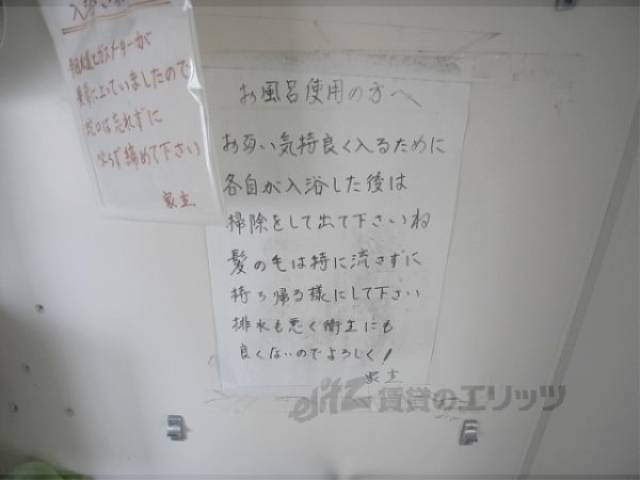 入浴
水道とガスメーターが
異常に上っていましたので
蛇口は忘れずに
必らず締めて下さい
家主
お風呂使用の方へ
お互い気持良く入るために
各自が入浴した後は
掃除をして出て下さいね
髪の毛は特に流さずに
持ち帰る様にして下さい
排水も悪く衛生にも
良くないのでよろしく!
家主
elitz 賃貸のエリッツ